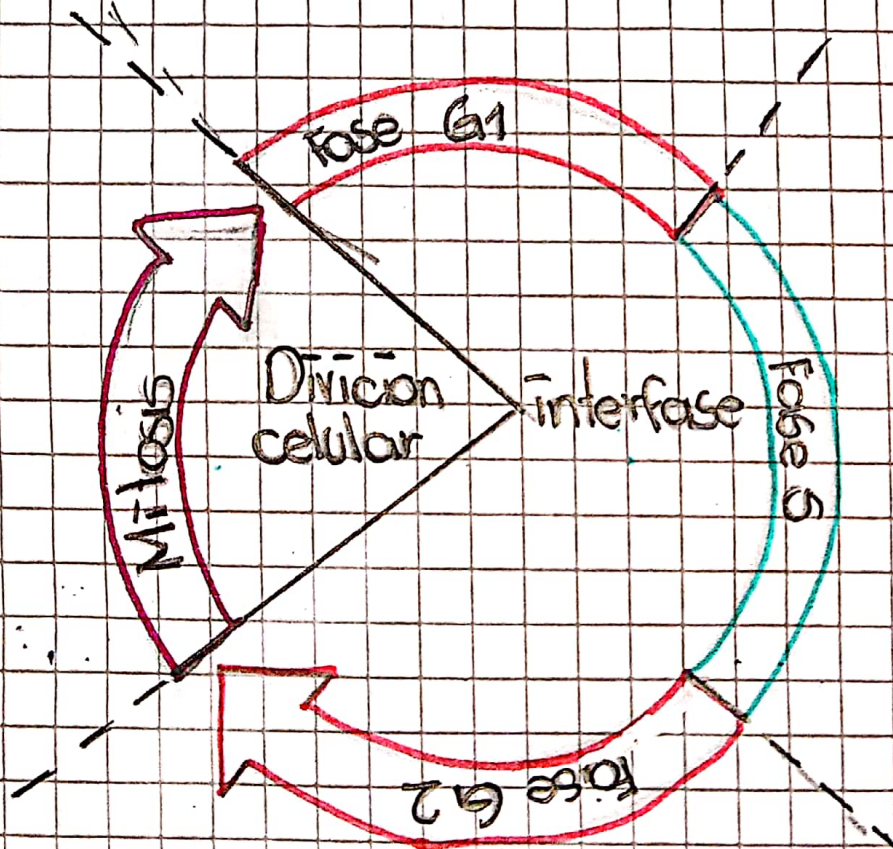 Fase G1
Fase S
Fase G2
Mitosis
Divicion
celular
interfase